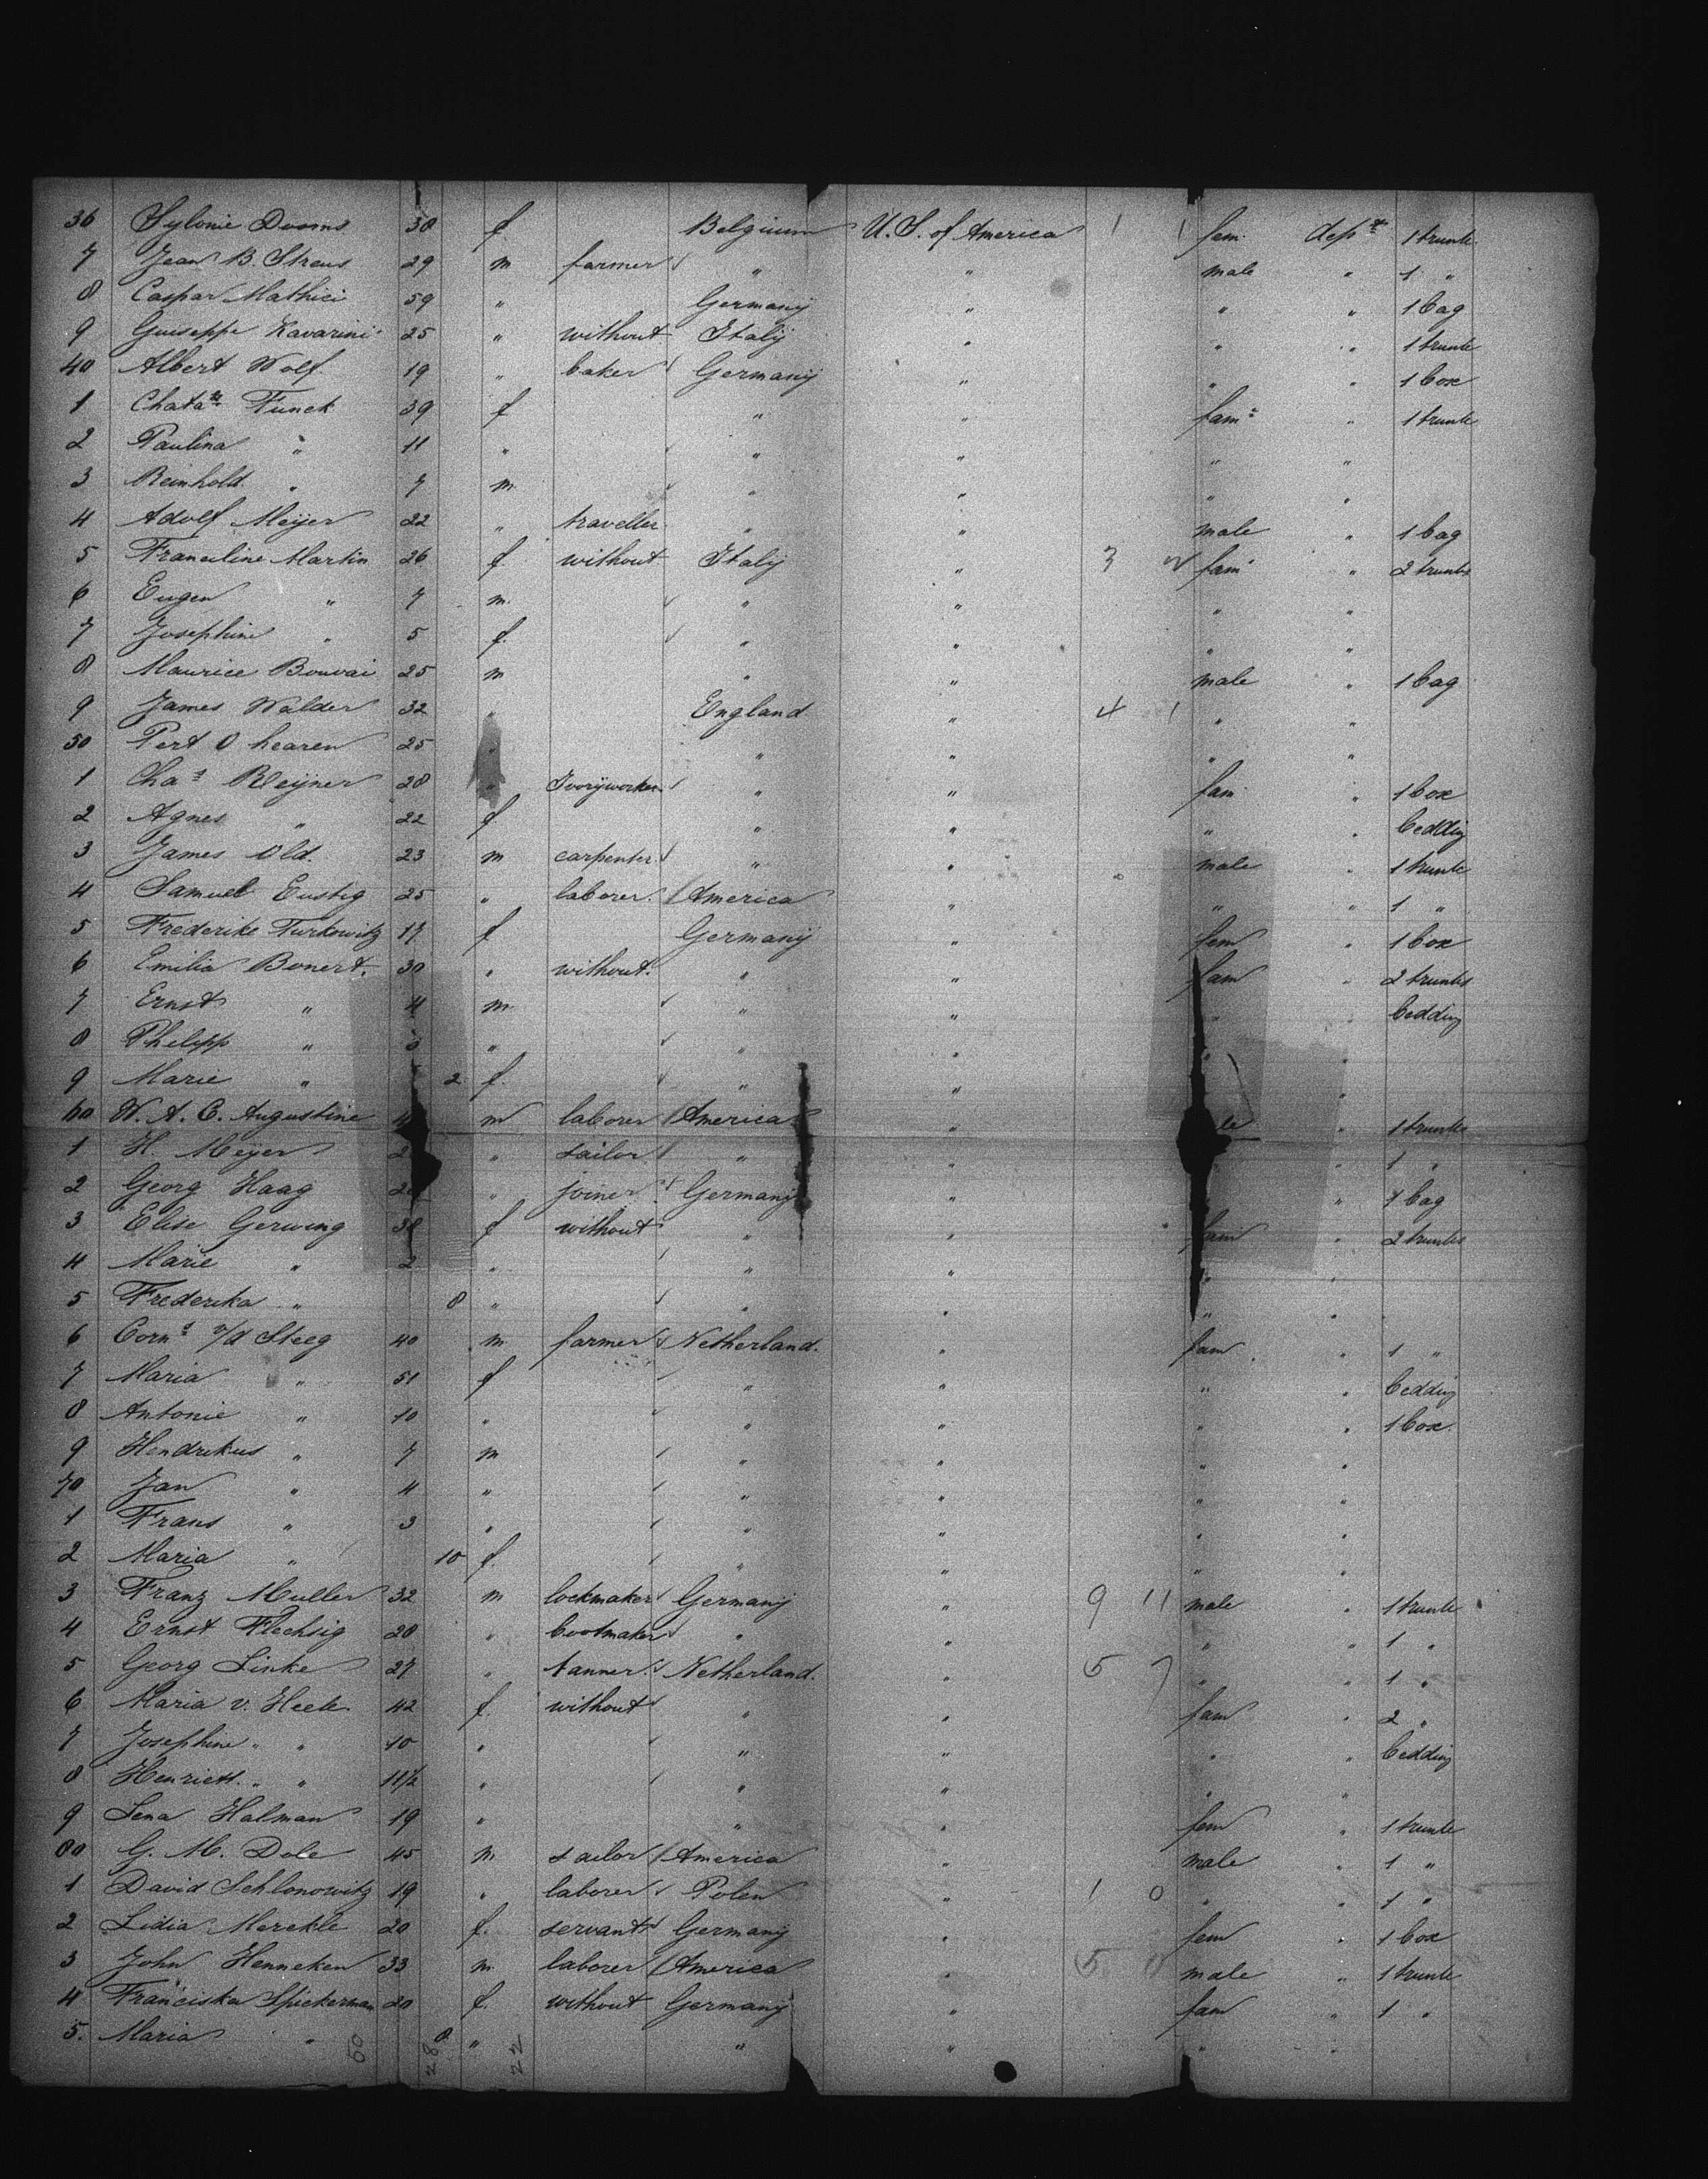 36 Sylonie Dooms 38 f Belgium U.S. of America 1 1 fem. dept 1 trunk
7 Jean B. Streus 29 m farmer " " male " 1 "
8 Caspar Mathici 59 " Germany " " " 1 bag
9 Guiseppe Kavarini 25 " without Italy " " " 1 trunk
40 Albert Wolf 19 " baker Germany " " " 1 box
1 Funck 39 f " " fam " 1 trunk
2 Paulina " 11 " " " " "
3 Reinhold " 7 m " " " "
4 Adolf Meijer 22 " traveller " " male " 1 bag
5 Martin 26 f without Italy " 3 2 fam " 2 trunks
6 Eugen " 7 m " " " "
7 Josephine " 5 f " " " "
8 Maurice Bouvai 25 m " " male " 1 bag
9 James Walder 32 " England " 4 1 " "
50 Pert O hearen 25 " " " " "
1 Chas Bleijner 28 " Ivoryworker " " fam " 1 box
2 Agnes " 22 f " " " " bedding
3 James Old. 23 m carpenter " " male " 1 trunk
4 Samuel Eustig 25 " laborer America " " " 1 "
5 Frederike Turkowitz 17 f Germany " fem " 1 box
6 Emilia Bonert. 30 " without " " fam " 2 trunks
7 Ernst " 4 m " " " " bedding
8 Philipp " " " " " "
9 Marie " 2 f " " "
60 W. A. C. Augustine m laborer America " " 1 trunk
1 H. Meijer " sailor " " " 1 "
2 Georg Haag " joiner Germany " " 1 bag
3 Elise Gerwing 38 f without " " fam " 2 trunks
4 Marie " 2 " " " " "
5 Frederika " 8 " " " " "
6 Corns v/d Steeg 40 m farmer Netherland. " fam " 1 "
7 Maria " 51 f " " " " bedding
8 Antonie " 10 " " " " " 1 box
9 Hendrikus " 7 m " " " "
70 Jan " 4 " " " " "
1 Frans " 3 " " " " "
2 Maria " 10 f " " " "
3 Franz Muller 32 m lockmaker Germany " 9 11 male " 1 trunk
4 Ernst Flechsig 28 " bootmaker " " " " 1 "
5 Georg Linke 27 " tanner Netherland. " 5 7 " " 1 "
6 Maria v. Heek 42 f. without " " fam " 2 "
7 Josephine " " 10 " " " " " bedding
8 Henriett. " " 11½ " " " " "
9 Lena Halman 19 " " " fem " 1 trunk
80 G. M. Dole 45 m sailor America " male " 1 "
1 David Schlonowitz 19 " laborer Polen " 1 0 " " 1 "
2 Lidia Merckle 20 f. servant Germany " fem " 1 box
3 John Henneken 33 m laborer America " 5 male " 1 trunk
4 Franciska Spickerman 20 f. without Germany " fam " 1 "
5. Maria " " " " " "
60 28 22